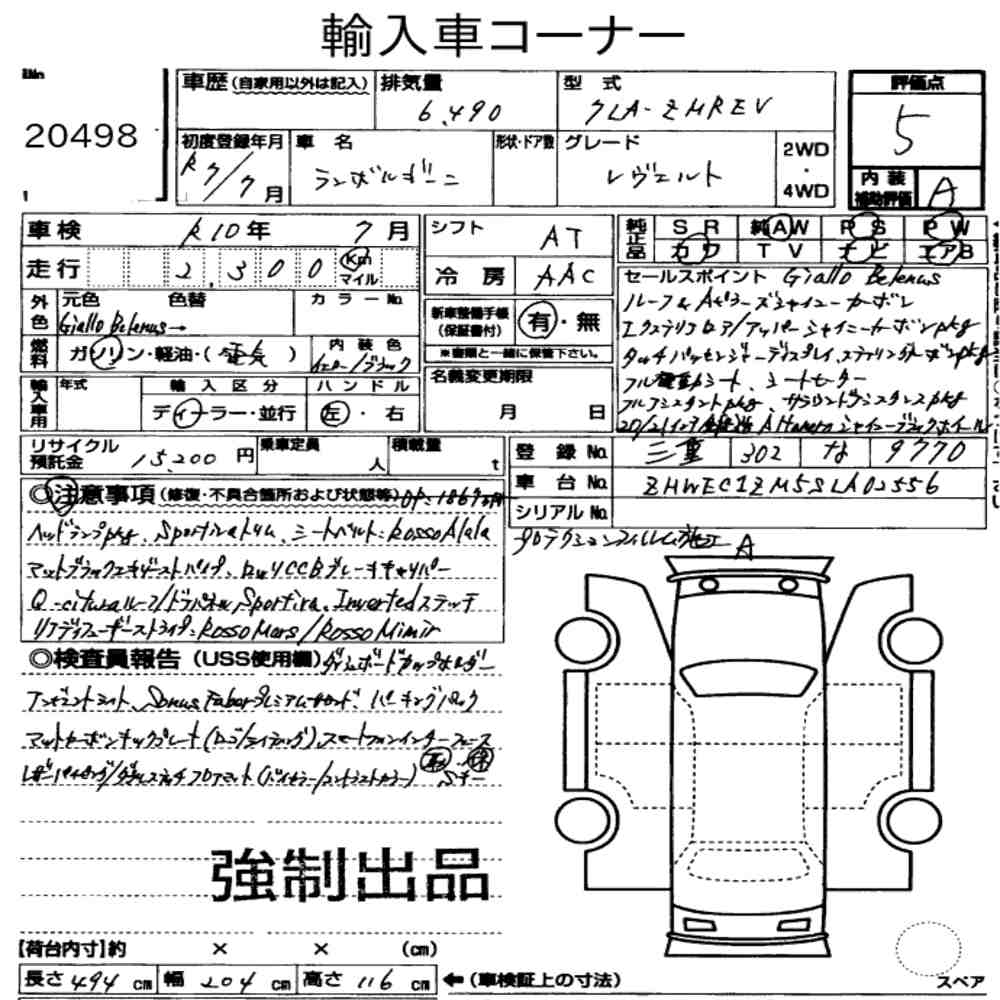 輸入車コーナー
No
20498
車歴 (自家用以外は記入) 排気量 6,490 型式 7LA-ZHREV
初度登録年月 R7/7月 車名 ランボルギーニ 形状・ドア数 グレード レヴェルト 2WD・4WD
評価点 5
内装補助評価 A
車検 R10年 7月
走行 2,300 Km マイル
外色 元色 Giallo Belenus→ 色替 カラーNo.
燃料 ガソリン・軽油・(電気) 内装色 イエロー/ブラック
輸入車用 年式 輸入区分 ディーラー・並行 ハンドル 左・右
シフト AT
冷房 AAC
新車整備手帳(保証書付) 有・無
※書類と一緒に保管下さい。
名義変更期限 月 日
純正品 SR 純AW PS PW
カワ TV ナビ エアB
セールスポイント Giallo Belenus
ルーフ&Aピラーズシャイニーカーボン
エクステリアロア/アッパーシャイニーカーボンpkg
タッチパッセンジャーディスプレイ、ステアリングカーボンpkg
フル電動シート、シートヒーター
フルアシスタントpkg、サラウンドアシスタンスpkg
20/21インチ Altanero シャイニーブラックホイール
リサイクル預託金 15,200円 乗車定員 人 積載量 t
登録No. 三重 302 な 9770
車台No. ZHWEC1ZM5SLA02556
シリアルNo.
◎注意事項 (修復・不具合箇所および状態等) OP=1869万円
ヘッドランプpkg、Sportivaトリム、シートベルト:Rosso Alala
マットブラックエキゾーストパイプ、ロッソCCBブレーキキャリパー
Q-cituraルーフ/ドアパネル、Sportiva、Invertedステッチ
リアディフューザーストライプ:Rosso Mars/Rosso Mimir
プロテクションフィルム施工 A
◎検査員報告 (USS使用欄) ダッシュボードカップホルダー
アンビエントライト、Sonus Faberプレミアムサウンド、パーキングパック
マットカーボンキックプレート(ロゴ/ライティング)、スマートフォンインターフェース
レザーパイピング/ダブルステッチフロアマット(バイカラー/コントラストカラー) 取 保 Sキー
強制出品
【荷台内寸】約 × × (cm)
長さ 494 cm 幅 204 cm 高さ 116 cm ←(車検証上の寸法)
スペア